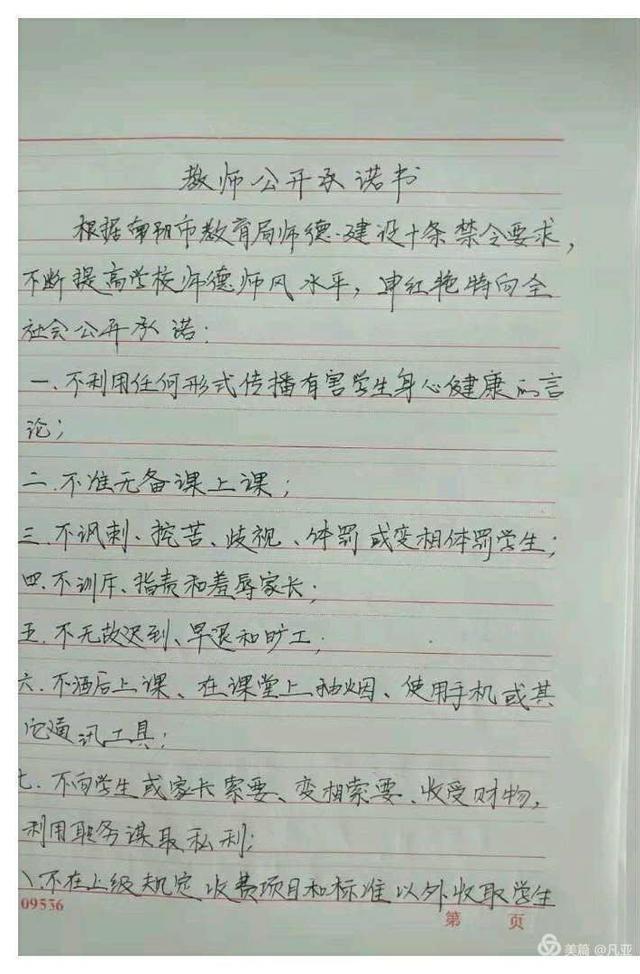 教师公开承诺书
根据南阳市教育局师德建设十条禁令要求,
不断提高学校师德师风水平,申红艳特向全
社会公开承诺:
一.不利用任何形式传播有害学生身心健康的言
论;
二.不准无备课上课;
三.不讽刺、挖苦、歧视、体罚或变相体罚学生;
四.不训斥、指责和羞辱家长;
五.不无故迟到、早退和旷工;
六.不酒后上课、在课堂上抽烟、使用手机或其
它通讯工具;
七.不向学生或家长索要、变相索要、收受财物,
利用职务谋取私利;
八.不在上级规定收费项目和标准以外收取学生
09536
第 页
美篇 @凡亚